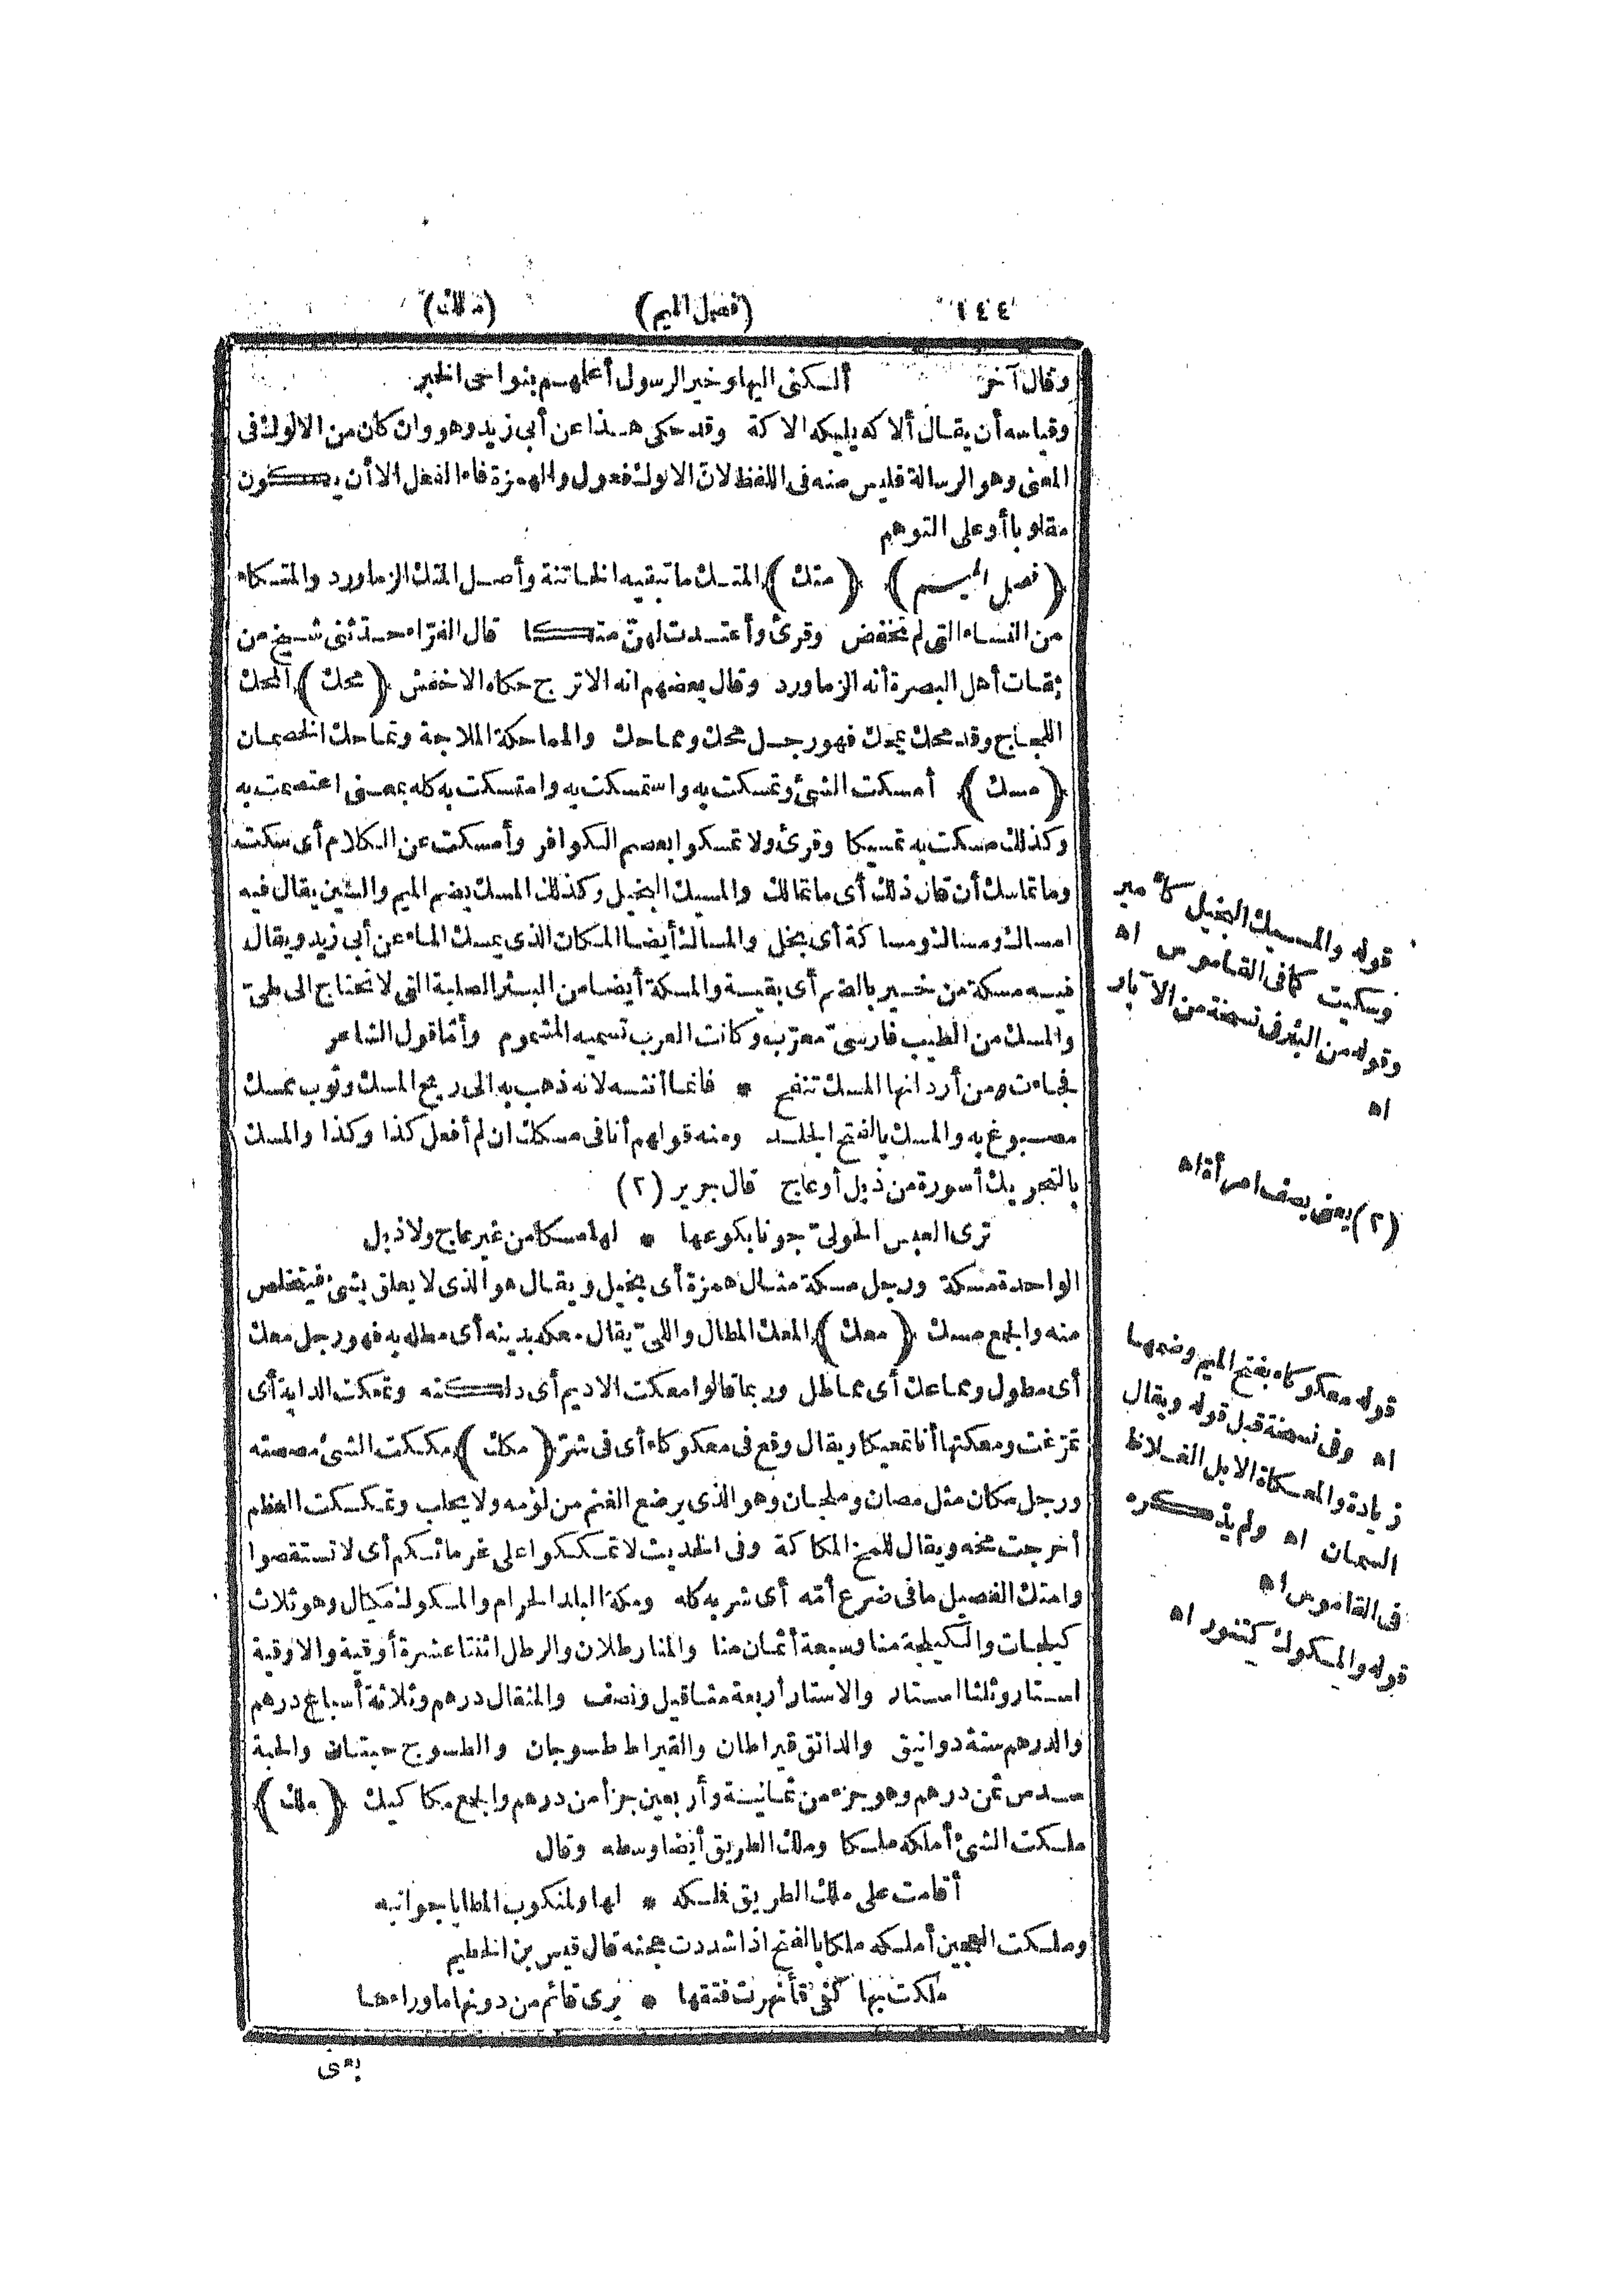 ١٤٤ (فصل الميم) (ملك)
وقال آخر ألكنى اليها وخير الرسول أعلمهم بنواحى الخبر
وقياسه أن يقال ألاكه يليكه الاكة وقد حكى هذا عن أبى زيد وهو وان كان من الالوك فى
المعنى وهو الرسالة فليس منه فى اللفظ لانّ الالوك فعول والهمزة فاء الفعل الا أن يكون
مقلوبا أو على التوهم
(فصل الميم) (متك) المتك ما تبقيه الخاتنة وأصل المتك الزماورد والمتكاء
من النساء التى لم تخفض وقرئ وأعتدت لهنّ متكا قال الفرّاء حدّثنى شيخ من
ثقات أهل البصرة أنه الزماورد وقال بعضهم انه الاترج حكاه الاخفش (محك) المحك
اللجاج وقد محك يمحك فهو رجل محك ومماحك والمماحكة الملاجة وتماحك الخصمان
(مسك) أمسكت الشئ وتمسكت به واستمسكت به وامتسكت به كله بمعنى اعتصمت به
وكذلك مسكت به تمسيكا وقرئ ولا تمسكوا بعصم الكوافر وأمسكت عن الكلام أى سكت
وما تماسك أن قال ذلك أى ما تمالك والمسيك البخيل وكذلك المسك بضم الميم والسين يقال فيه
امساك ومساك ومساكة أى بخل والمساك أيضا المكان الذى يمسك الماء عن أبى زيد ويقال
فيه مسكة من خير بالضم أى بقية والمسكة أيضا من البئر الصلبة التى لا تحتاج الى طىّ
والمسك من الطيب فارسىّ معرّب وكانت العرب تسميه المشموم وأمّا قول الشاعر
فجاءت ومن أردانها المسك تنفح * فانما أنثه لانه ذهب به الى ريح المسك وثوب ممسك
مصبوغ به والمسك بالفتح الجلد ومنه قولهم أنا فى مسكك ان لم أفعل كذا وكذا والمسك
بالتحريك أسورة من ذبل أو عاج قال جرير (٢)
ترى العبس الحولىّ جونا بكوعها * لها مسكا من غير عاج ولا ذبل
الواحدة مسكة ورجل مسكة مثال همزة أى بخيل ويقال هو الذى لا يعلق بشئ فيتخلص
منه والجمع مسك (معك) المعك المطال واللىّ يقال معكه بدينه أى مطله به فهو رجل معك
أى مطول ومماعك أى مماطل وربما قالوا معكت الاديم أى دلكته وتمعكت الدابة أى
تمرّغت ومعكتها أنا تمعيكا ويقال وقع فى معكوكاء أى فى شرّ (مكك) مككت الشئ مصصته
ورجل مكان مثل مصان وملجان وهو الذى يرضع الغنم من لؤمه ولا يحلب وتمككت العظم
أخرجت مخه ويقال للمخ المكاكة وفى الحديث لا تمككوا على غرمائكم أى لا تستقصوا
وامتك الفصيل ما فى ضرع أمّه أى شربه كله ومكة البلد الحرام والمكوك مكيال وهو ثلاث
كيلجات والكيلجة منا وسبعة أثمان منا والمنا رطلان والرطل اثنتا عشرة أوقية والاوقية
استار وثلثا استار والاستار أربعة مثاقيل ونصف والمثقال درهم وثلاثة أسباع درهم
والدرهم ستة دوانيق والدانق قيراطان والقيراط طسوجان والطسوج حبتان والحبة
سدس ثمن درهم وهو جزء من ثمانية وأربعين جزأ من درهم والجمع مكاكيك (ملك)
ملكت الشئ أملكه ملكا وملك الطريق أيضا وسطه وقال
أقامت على ملك الطريق فلكه * لها ولمنكوب المطايا جوانبه
وملكت العجين أملكه ملكا بالفتح اذا شددت عجنه قال قيس بن الخطيم
ملكت بها كفى فأنهرت فتقها * يرى قائم من دونها ما وراءها
بمعنى
قوله والمسيك البخيل كأمير
وسكيت كما فى القاموس اه
وقوله من البئر فى نسخة من الآبار
اه
(٢) يعنى يصف امرأة اه
قوله معكوكاء بفتح الميم وضمها
اه وفى نسخة قبل قوله ويقال
زيادة والمعكاة الابل الغلاظ
السمان اه ولم يذكره
فى القاموس اه
قوله والمكوك كتنور اه